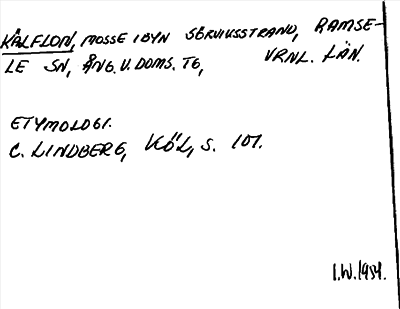 KÅLFLON, MOSSE I BYN SÖRVIKSSTRAND, RAMSE-
LE SN, ÅNG. V. DOMS. TG, VRNL. LÄN.
ETYMOLOGI.
C. LINDBERG, KÖL, S. 101.
I.W. 1934.